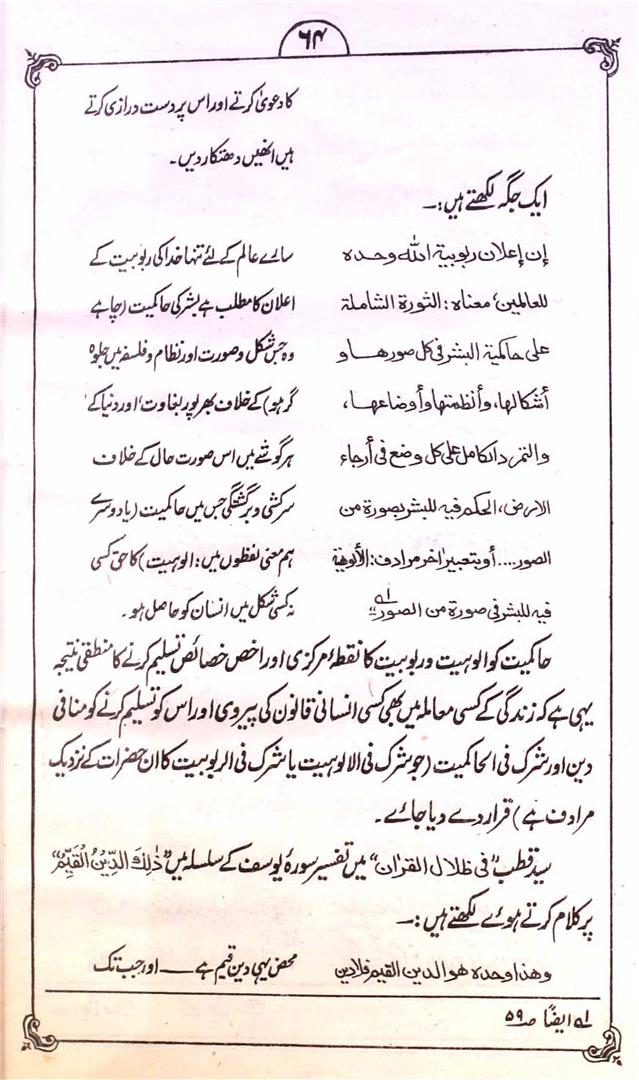 ۶۴
کا دعویٰ کرتے اور اس پر دست درازی کرتے
ہیں انھیں دھتکار دیں۔
ایک جگہ لکھتے ہیں:—
إن إعلان ربوبية الله وحده
للعالمين، معناه: الثورة الشاملة
على حاكمية البشر فى كل صورها و
أشكالها، وأنظمتها وأوضاعها،
والتمرد الكامل على كل وضع فى أرجاء
الارض، الحكم فيه للبشر بصورة من
الصور.... أو بتعبير اٰخر مرادف: الألوهية
فيه للبشر فى صورة من الصور" لے
سارے عالم کے لئے تنہا خدا کی ربوبیت کے
اعلان کا مطلب ہے بشر کی حاکمیت (چاہے
وہ جس شکل و صورت اور نظام و فلسفہ میں جلوہ
گر ہو) کے خلاف بھرپور بغاوت، اور دنیا کے
ہر گوشے میں اس صورت حال کے خلاف
سرکشی و برگشتگی جس میں حاکمیت (یا دوسرے
ہم معنی لفظوں میں: الوہیت) کا حق کسی
نہ کسی شکل میں انسان کو حاصل ہو۔
حاکمیت کو الوہیت و ربوبیت کا نقطۂ مرکزی اور اخص خصائص تسلیم کرنے کا منطقی نتیجہ
یہی ہے کہ زندگی کے کسی معاملہ میں بھی کسی انسانی قانون کی پیروی اور اس کو تسلیم کرنے کو منافی
دین اور شرک فی الحاکمیت (جو شرک فی الالوہیت یا شرک فی الربوبیت کا ان حضرات کے نزدیک
مرادف ہے) قرار دے دیا جائے۔
سید قطب "فی ظلال القرآن" میں تفسیر سورۂ یوسف کے سلسلہ میں "ذٰلِكَ الدِّيْنُ الْقَيِّمُ"
پر کلام کرتے ہوئے لکھتے ہیں:—
وهذا وحده هو الدين القيم فلا دين
محض یہی دین قیم ہے — اور جب تک
لے ایضاً صـ ۵۹